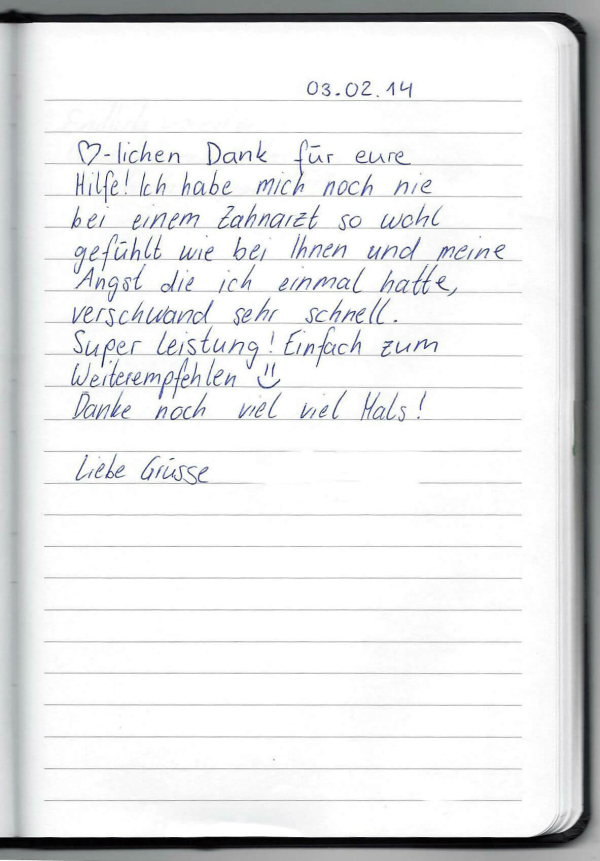 03.02.14
♡-lichen Dank für eure
Hilfe! Ich habe mich noch nie
bei einem Zahnarzt so wohl
gefühlt wie bei Ihnen und meine
Angst die ich einmal hatte,
verschwand sehr schnell.
Super Leistung! Einfach zum
Weiterempfehlen
Danke noch viel viel Mals!
Liebe Grüsse